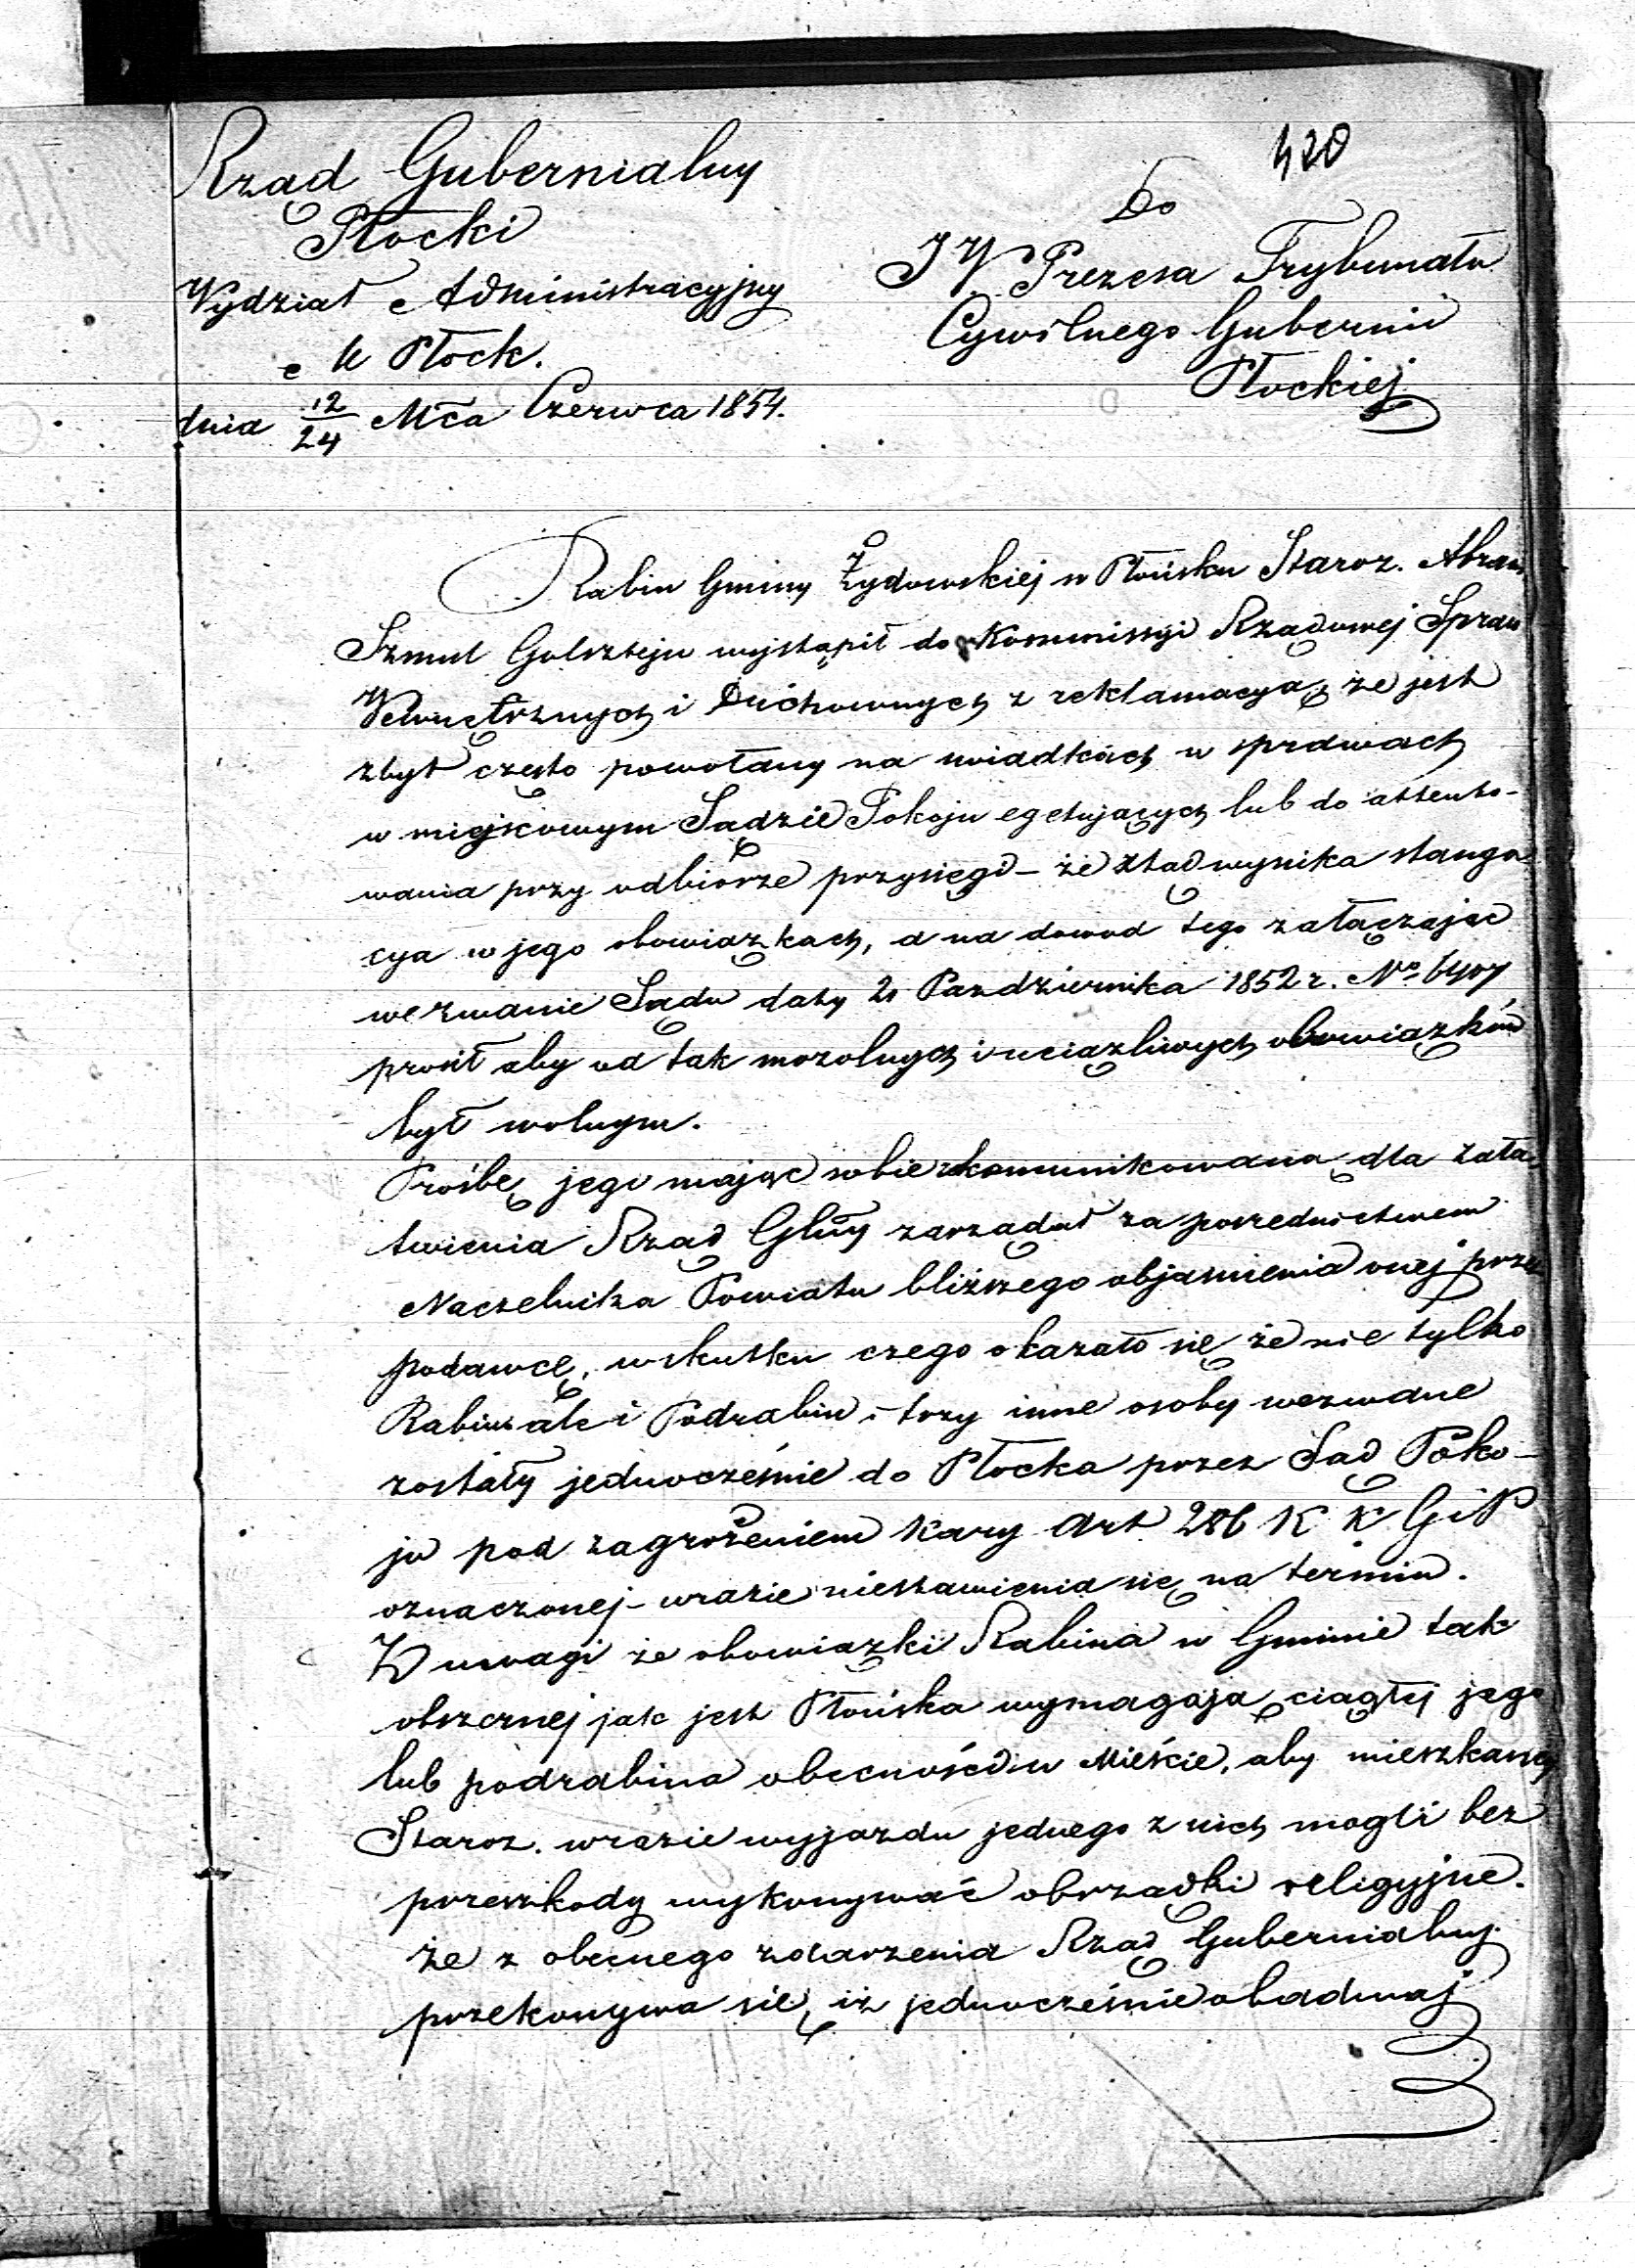 420
Rząd Gubernialny
Płocki
Wydział Administracyjny
M Płock.
dnia 12/24 Mca Czerwca 1854.
Do
JW Prezesa Trybunału
Cywilnego Gubernii
Płockiej
Rabin Gminy Żydowskiej w Płońsku Staroz. Abram
Szmul Golsztejn wystąpił do Kommissyi Rządowej Spraw
Wewnętrznych i Duchownych z reklamacyą, że jest
zbyt często powołany na swiadkach w sprawach
w miejscowym Sądzie Pokoju lub do assento-
wania przy odbiorze przysięgi – że ztąd wynika stagna
cya w jego obowiązkach, a na dowod tego załączając
wezwanie Sądu daty 21 Pazdziernika 1852 r. No
prosił aby od tak mozolnych i uciążliwych obowiązków
był wolnym.
Prośbę jego mając sobie zkomunikowaną dla zała-
twienia Rząd Glny zarządał za posrednictwem
Naczelnika Powiatu bliższego objasnienia onej przez
podawcę, wskutku czego okazało się że nie tylko
Rabin ale i Podrabin i trzy inne osoby wezwane
zostały jednocześnie do Płocka przez Sąd Poko-
ju pod zagrożeniem kary Art 286 K K G i P
oznaczonej – wrazie niestawienia się na termin.
Z uwagi że obowiązki Rabina w Gminie tak
obszernej jak jest Płońska wymagają ciągłej jego
lub podrabina obecności w Mieście, aby mieszkańcy
Staroz. wrazie wyjazdu jednego z nich mogli bez
przeszkody wykonywać obrządki religyjne.
że z obecnego zdarzenia Rząd Gubernialny
przekonywa się, iż jednocześnie obadwaj